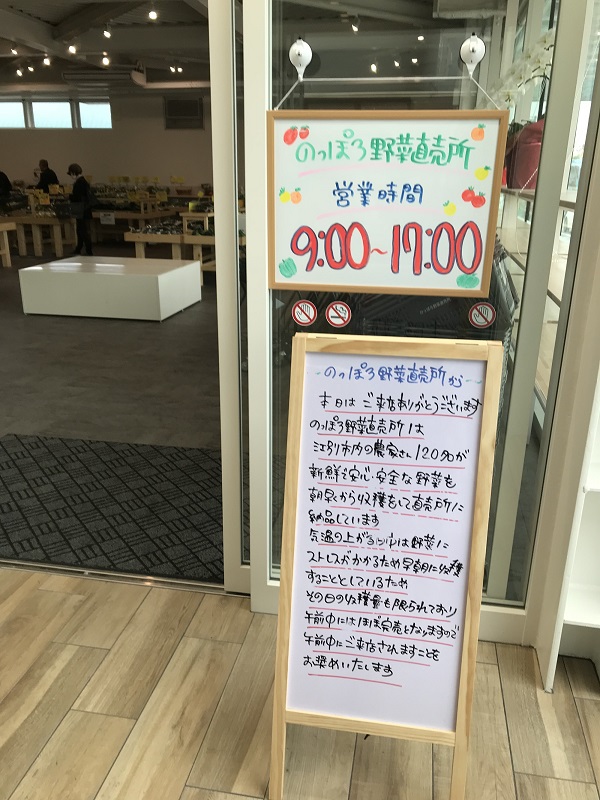 のっぽろ野菜直売所
営業時間
9:00～17:00
-のっぽろ野菜直売所から-
本日はご来店ありがとうございます
のっぽろ野菜直売所は
江別市内の農家さん120名が
新鮮で安心・安全な野菜を
朝早くから収穫をして直売所に
納品しています
気温の上がる日中は野菜に
ストレスがかかるため早朝に収穫
することとしているため
その日の収穫量も限られており
午前中にはほぼ完売となりますので
午前中にご来店されますことを
お奨めいたします